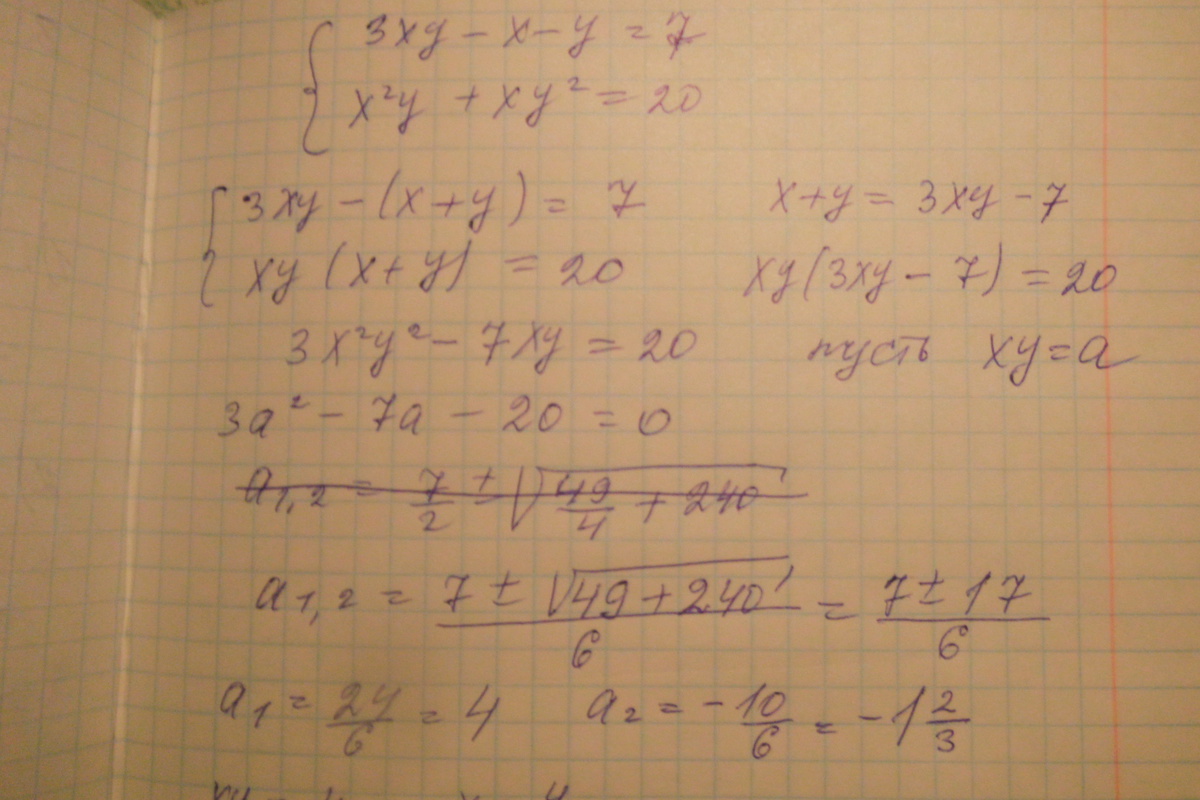 3xy - x - y = 7
x²y + xy² = 20
3xy - (x + y) = 7 x + y = 3xy - 7
xy (x + y) = 20 xy(3xy - 7) = 20
3x²y² - 7xy = 20 пусть xy = a
3a² - 7a - 20 = 0
a₁,₂ = 7/2 ± √(49/4 + 240)
a₁,₂ = (7 ± √(49 + 240))/6 = (7 ± 17)/6
a₁ = 24/6 = 4 a₂ = -10/6 = -1 2/3